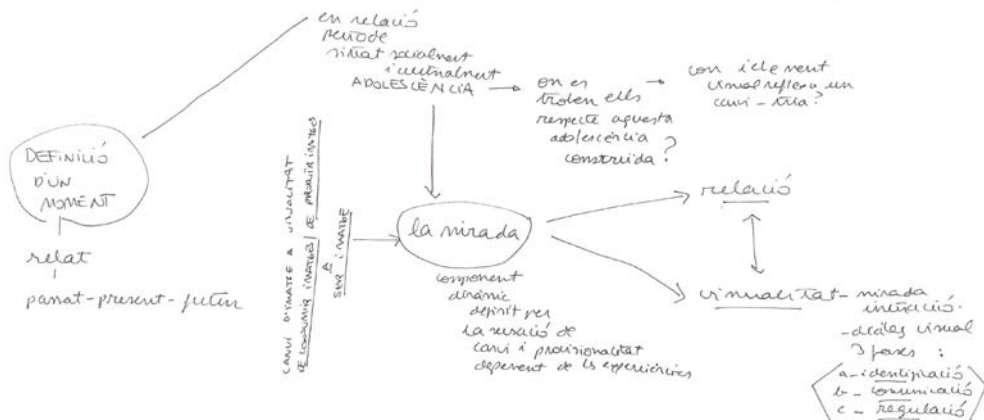 DEFINICIÓ
D'UN
MOMENT
relat
passat-present-futur
en relació
període
situat socialment
i culturalment
ADOLESCÈNCIA
on es
troben ells
respecte aquesta
adolescència
construïda?
com
visual reflexa un
canvi - tria?
CANVI D'IMATGE A VISUALITAT
DE CONSUMIR IMATGES / DE PRODUIR IMATGES
A
SER IMATGE
la mirada
component
dinàmic
definit per
la sensació de
canvi i provisionalitat
depenent de les experiències
relació
visualitat - mirada
interacció.
- diàleg visual
3 fases :
a - identificació
b - comunicació
c - regulació